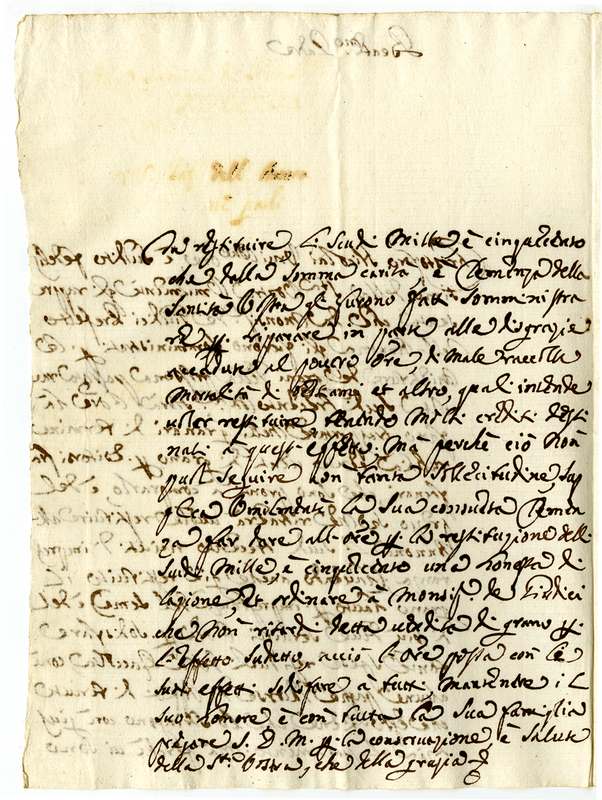 da restituire li scudi Mille, è cinquecento
che dalla somma carità, è Clemenza della
Santità Vostra gli furono fatti somministra
re p. riparare in parte alle disgrazie
accadute al povero Ore, di male raccolte
mortalità di bestiami et altro, quali intende
voler restituire tenendo molti crediti desti
nati à quest'effetto. Mà perchè ciò non
può seguire con tanta sollecitudine, sup
plica umilmente la sua consueta Clemen
za far dare all'Ore p. la restituzione delli
scudi Mille, è cinquecento una honesta di
lazione, et ordinare à Monsig. de Giudici
che non ritardi detta vendita di grano p.
l'effetto sudetto, acciò l'Ore possa con li
suoi effetti sodisfare à tutti mantenere il
suo honore, è con tutta la sua famiglia
pregare S. D. M. p. la conservazione, è salute
della Stà Vostra, che della grazia &